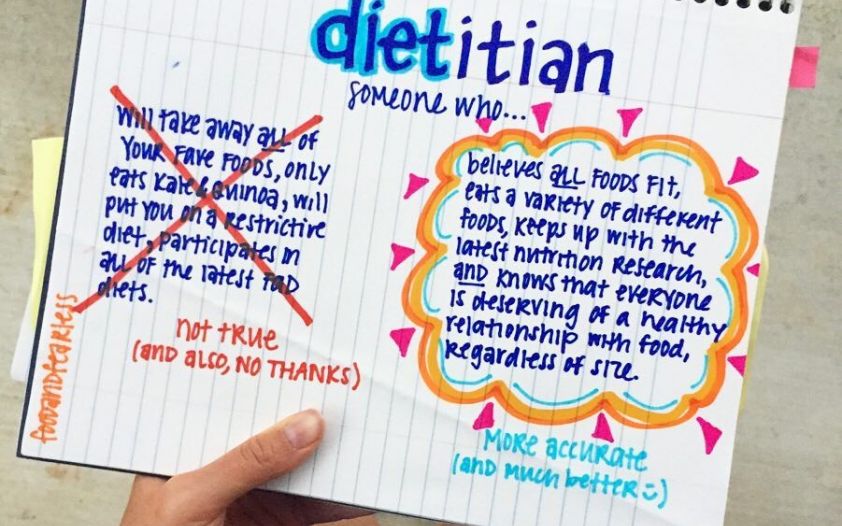 dietitian
someone who...
Will take away all of
your fave foods, only
eats kale & quinoa, will
put you on a restrictive
diet, participates in
all of the latest fad
diets.
not true
(and also, NO THANKS)
foodandfearless
believes all foods fit,
eats a variety of different
foods, keeps up with the
latest nutrition research,
and knows that everyone
is deserving of a healthy
relationship with food,
regardless of size.
more accurate
(and much better :)